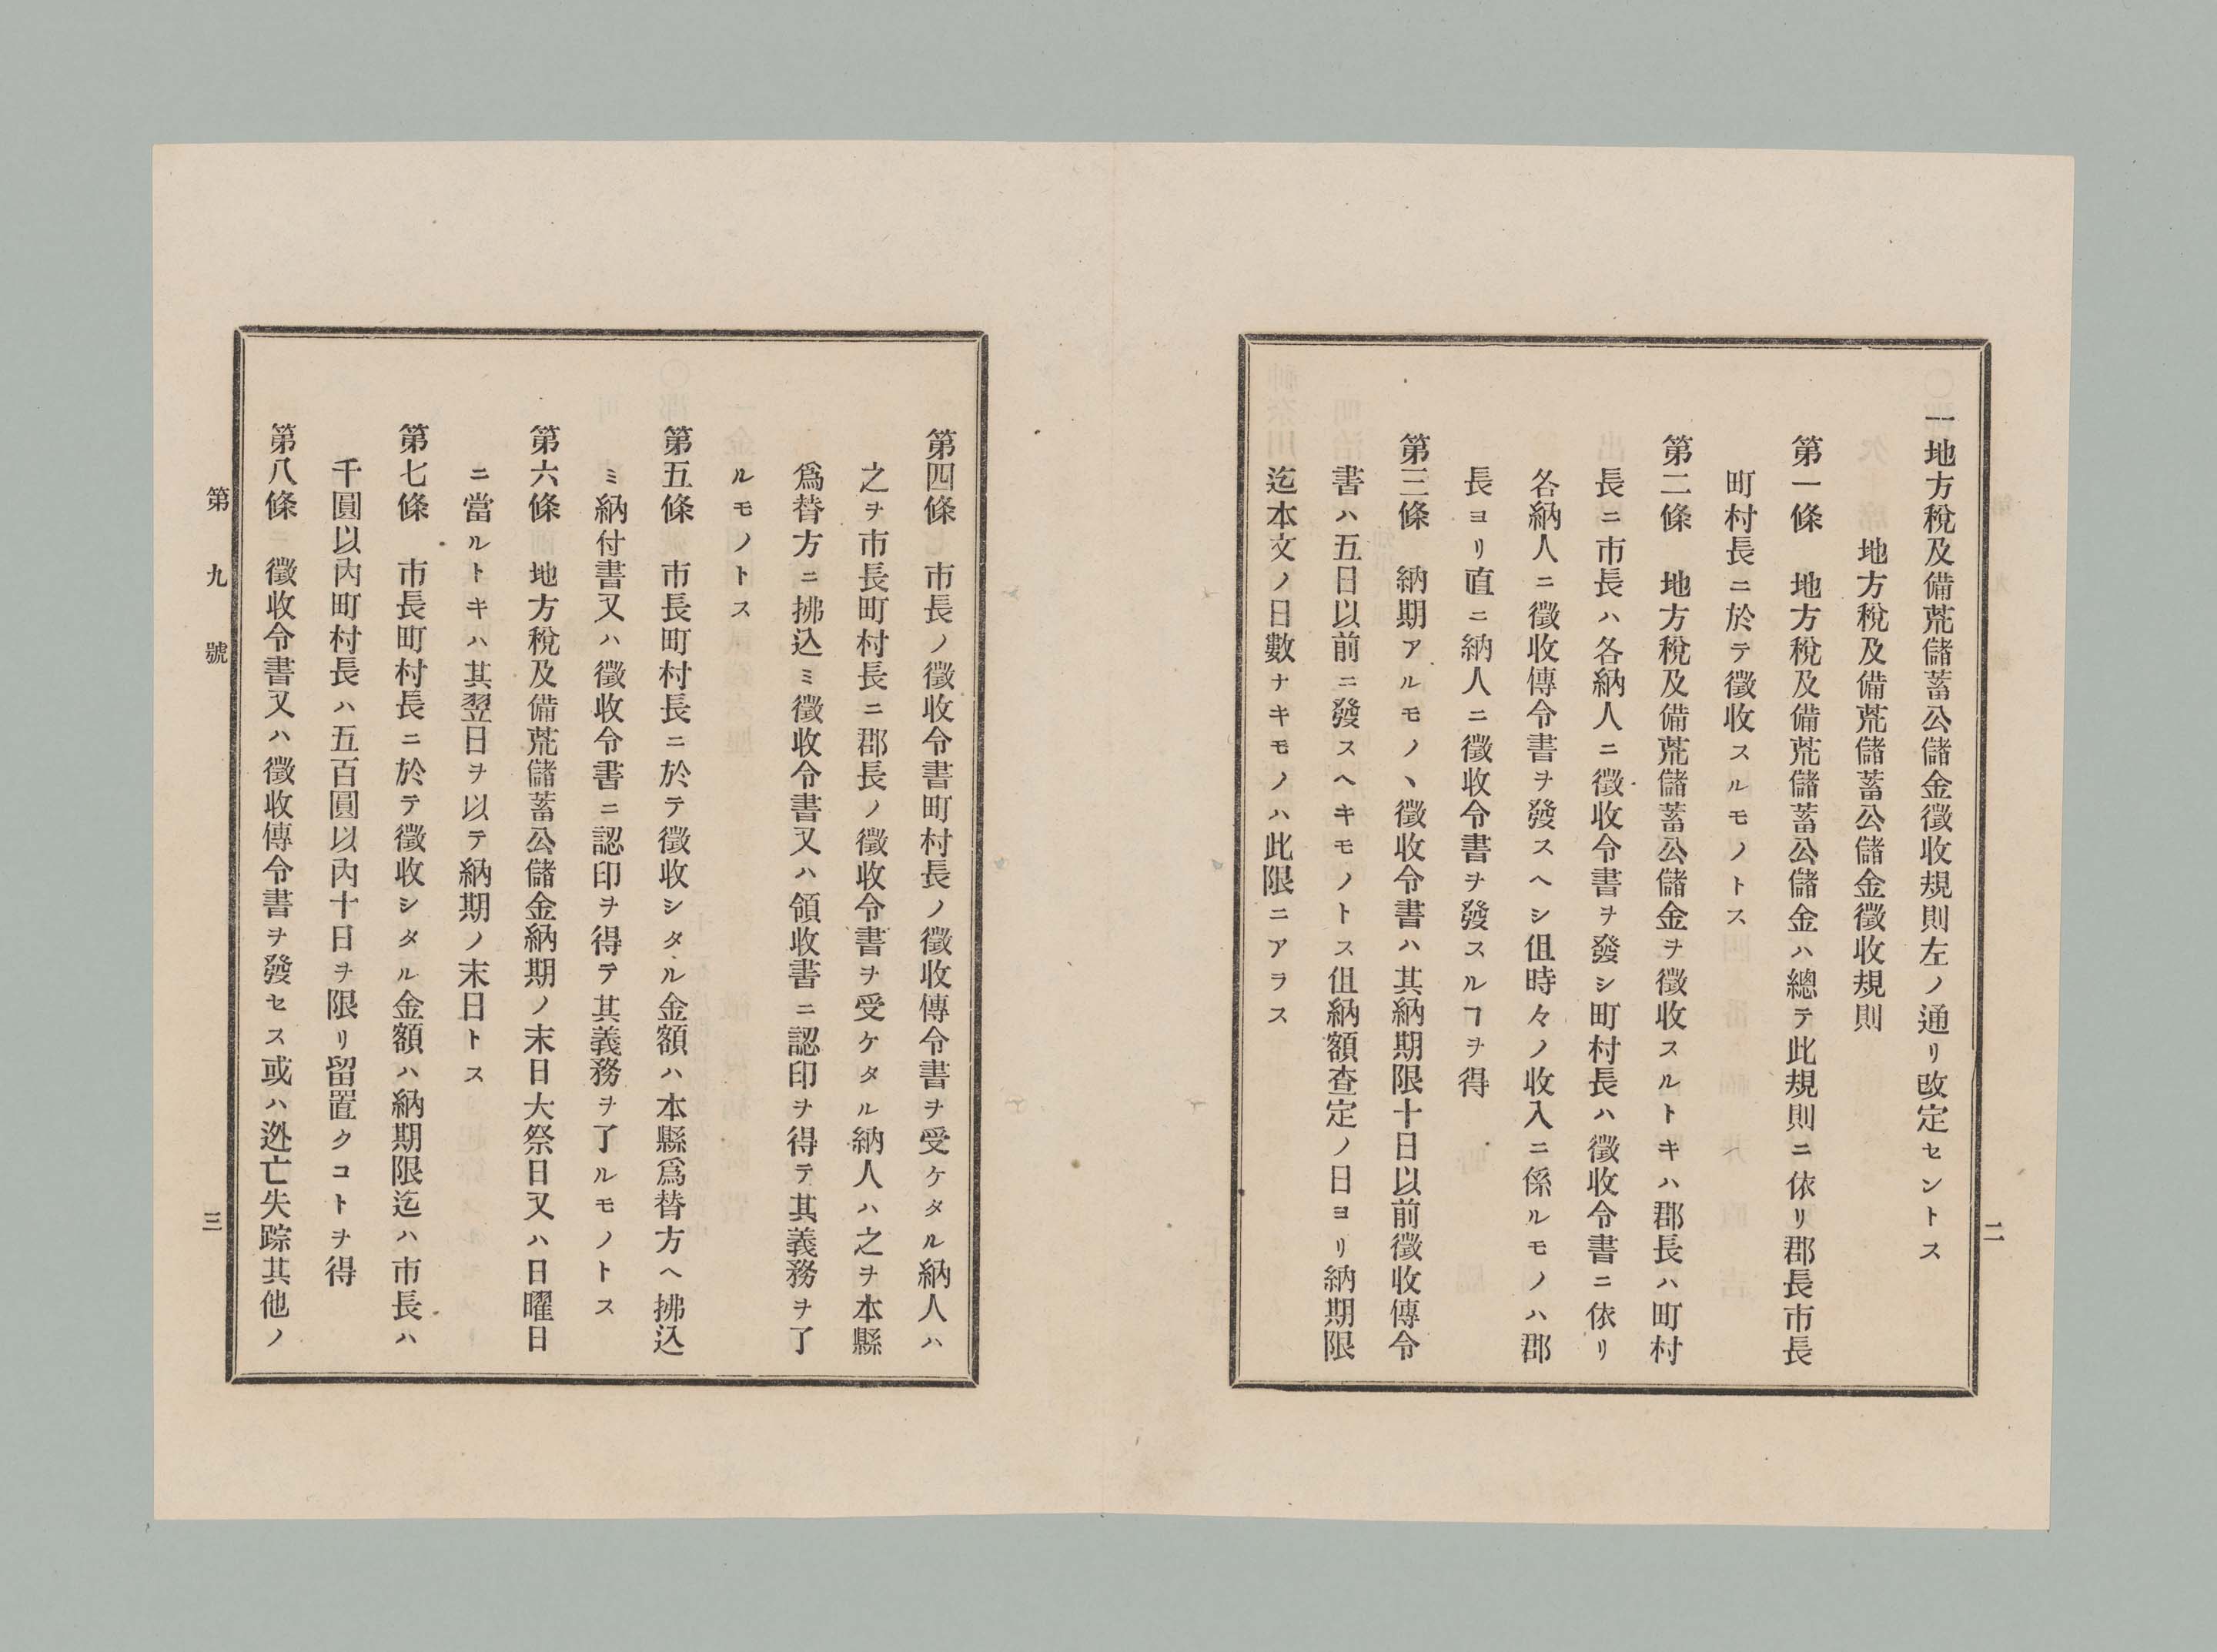 一地方稅及備荒儲蓄公儲金徵收規則左ノ通リ改定セントス
地方稅及備荒儲蓄公儲金徵收規則
第一條　地方稅及備荒儲蓄公儲金ハ總テ此規則ニ依リ郡長市長
町村長ニ於テ徵收スルモノトス
第二條　地方稅及備荒儲蓄公儲金ヲ徵收スルトキハ郡長ハ町村
長ニ市長ハ各納人ニ徵收令書ヲ發シ町村長ハ徵收令書ニ依リ
各納人ニ徵收傳令書ヲ發スヘシ伹時々ノ收入ニ係ルモノハ郡
長ヨリ直ニ納人ニ徵收令書ヲ發スルヿヲ得
第三條　納期アルモノヽ徵收令書ハ其納期限十日以前徵收傳令
書ハ五日以前ニ發スヘキモノトス伹納額查定ノ日ヨリ納期限
迄本文ノ日數ナキモノハ此限ニアラス
二
第四條　市長ノ徵收令書町村長ノ徵收傳令書ヲ受ケタル納人ハ
之ヲ市長町村長ニ郡長ノ徵收令書ヲ受ケタル納人ハ之ヲ本縣
爲替方ニ拂込ミ徵收令書又ハ領收書ニ認印ヲ得テ其義務ヲ了
ルモノトス
第五條　市長町村長ニ於テ徵收シタル金額ハ本縣爲替方ヘ拂込
ミ納付書又ハ徵收令書ニ認印ヲ得テ其義務ヲ了ルモノトス
第六條　地方稅及備荒儲蓄公儲金納期ノ末日大祭日又ハ日曜日
ニ當ルトキハ其翌日ヲ以テ納期ノ末日トス
第七條　市長町村長ニ於テ徵收シタル金額ハ納期限迄ハ市長ハ
千圓以內町村長ハ五百圓以內十日ヲ限リ留置クコトヲ得
第八條　徵收令書又ハ徵收傳令書ヲ發セス或ハ迯亡失踪其他ノ
第九號
三